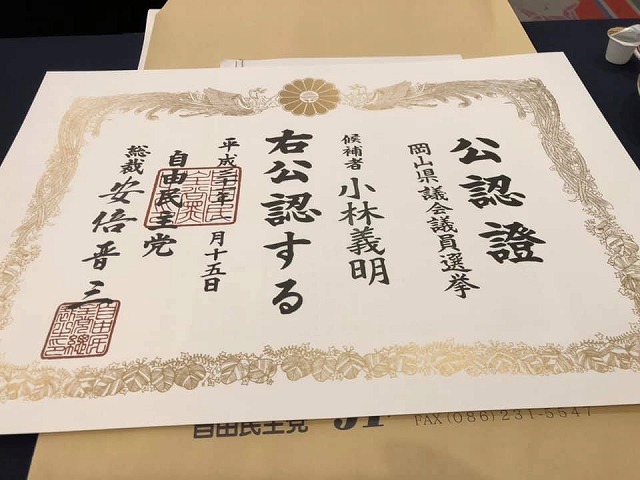 公認證
岡山県議会議員選挙
候補者 小林義明
右公認する
平成三十一年一月十五日
自由民主党
総裁 安倍晋三
自由民主党
FAX(086)231-5547